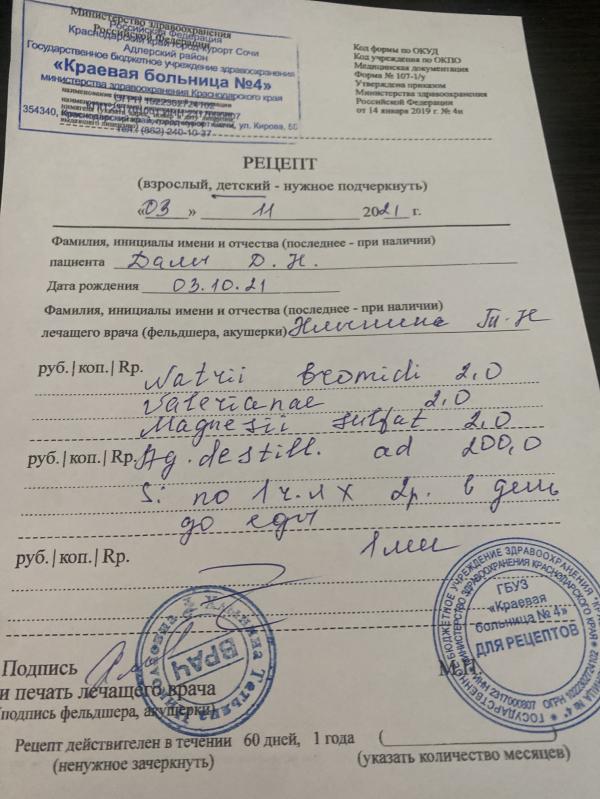 Министерство здравоохранения
Российской Федерации
Российская Федерация
Краснодарский край город-курорт Сочи
Адлерский район
Государственное бюджетное учреждение здравоохранения
«Краевая больница №4»
министерства здравоохранения Краснодарского края
ОГРН 1022302724102
354340, Краснодарский край, город-курорт Сочи, ул. Кирова, 50
тел. (862) 240-10-37
Код формы по ОКУД
Код учреждения по ОКПО
Медицинская документация
Форма № 107-1/у
Утверждена приказом
Министерства здравоохранения
Российской Федерации
от 14 января 2019 г. № 4н
РЕЦЕПТ
(взрослый, детский - нужное подчеркнуть)
«03» 11 2021 г.
Фамилия, инициалы имени и отчества (последнее - при наличии)
пациента Дали Д. Н.
Дата рождения 03.10.21
Фамилия, инициалы имени и отчества (последнее - при наличии)
лечащего врача (фельдшера, акушерки)
руб.|коп.| Rp. Natrii bromidi 2,0
Valerianae 2,0
Magnesii sulfat 2,0
руб.|коп.| Rp. Ag. destill. ad 200,0
S: по 1 ч.л х 2р. в день
до еды
руб.|коп.| Rp.
ВРАЧ
ГБУЗ
«Краевая
больница №4»
ДЛЯ РЕЦЕПТОВ
ИНН 2317000807 ОГРН 1022302724102
Подпись М.П.
и печать лечащего врача
(подпись фельдшера, акушерки)
Рецепт действителен в течении 60 дней, 1 года (
(ненужное зачеркнуть) (указать количество месяцев)